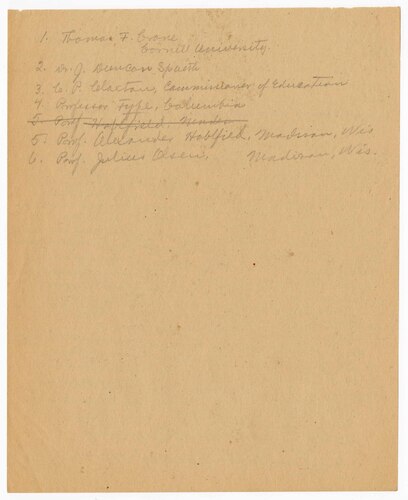 1. Thomas F. Crane
Cornell University
2. Dr. J. Duncan Spaeth
3. C. P. Claxton, Commissioner of Education
4 Professor Fype, Columbia
5 Prof. Hohlfield, Madison
5. Prof. Alexander Hohlfield, Madison, Wis
6. Prof. Julius Olsen, Madison, Wis.